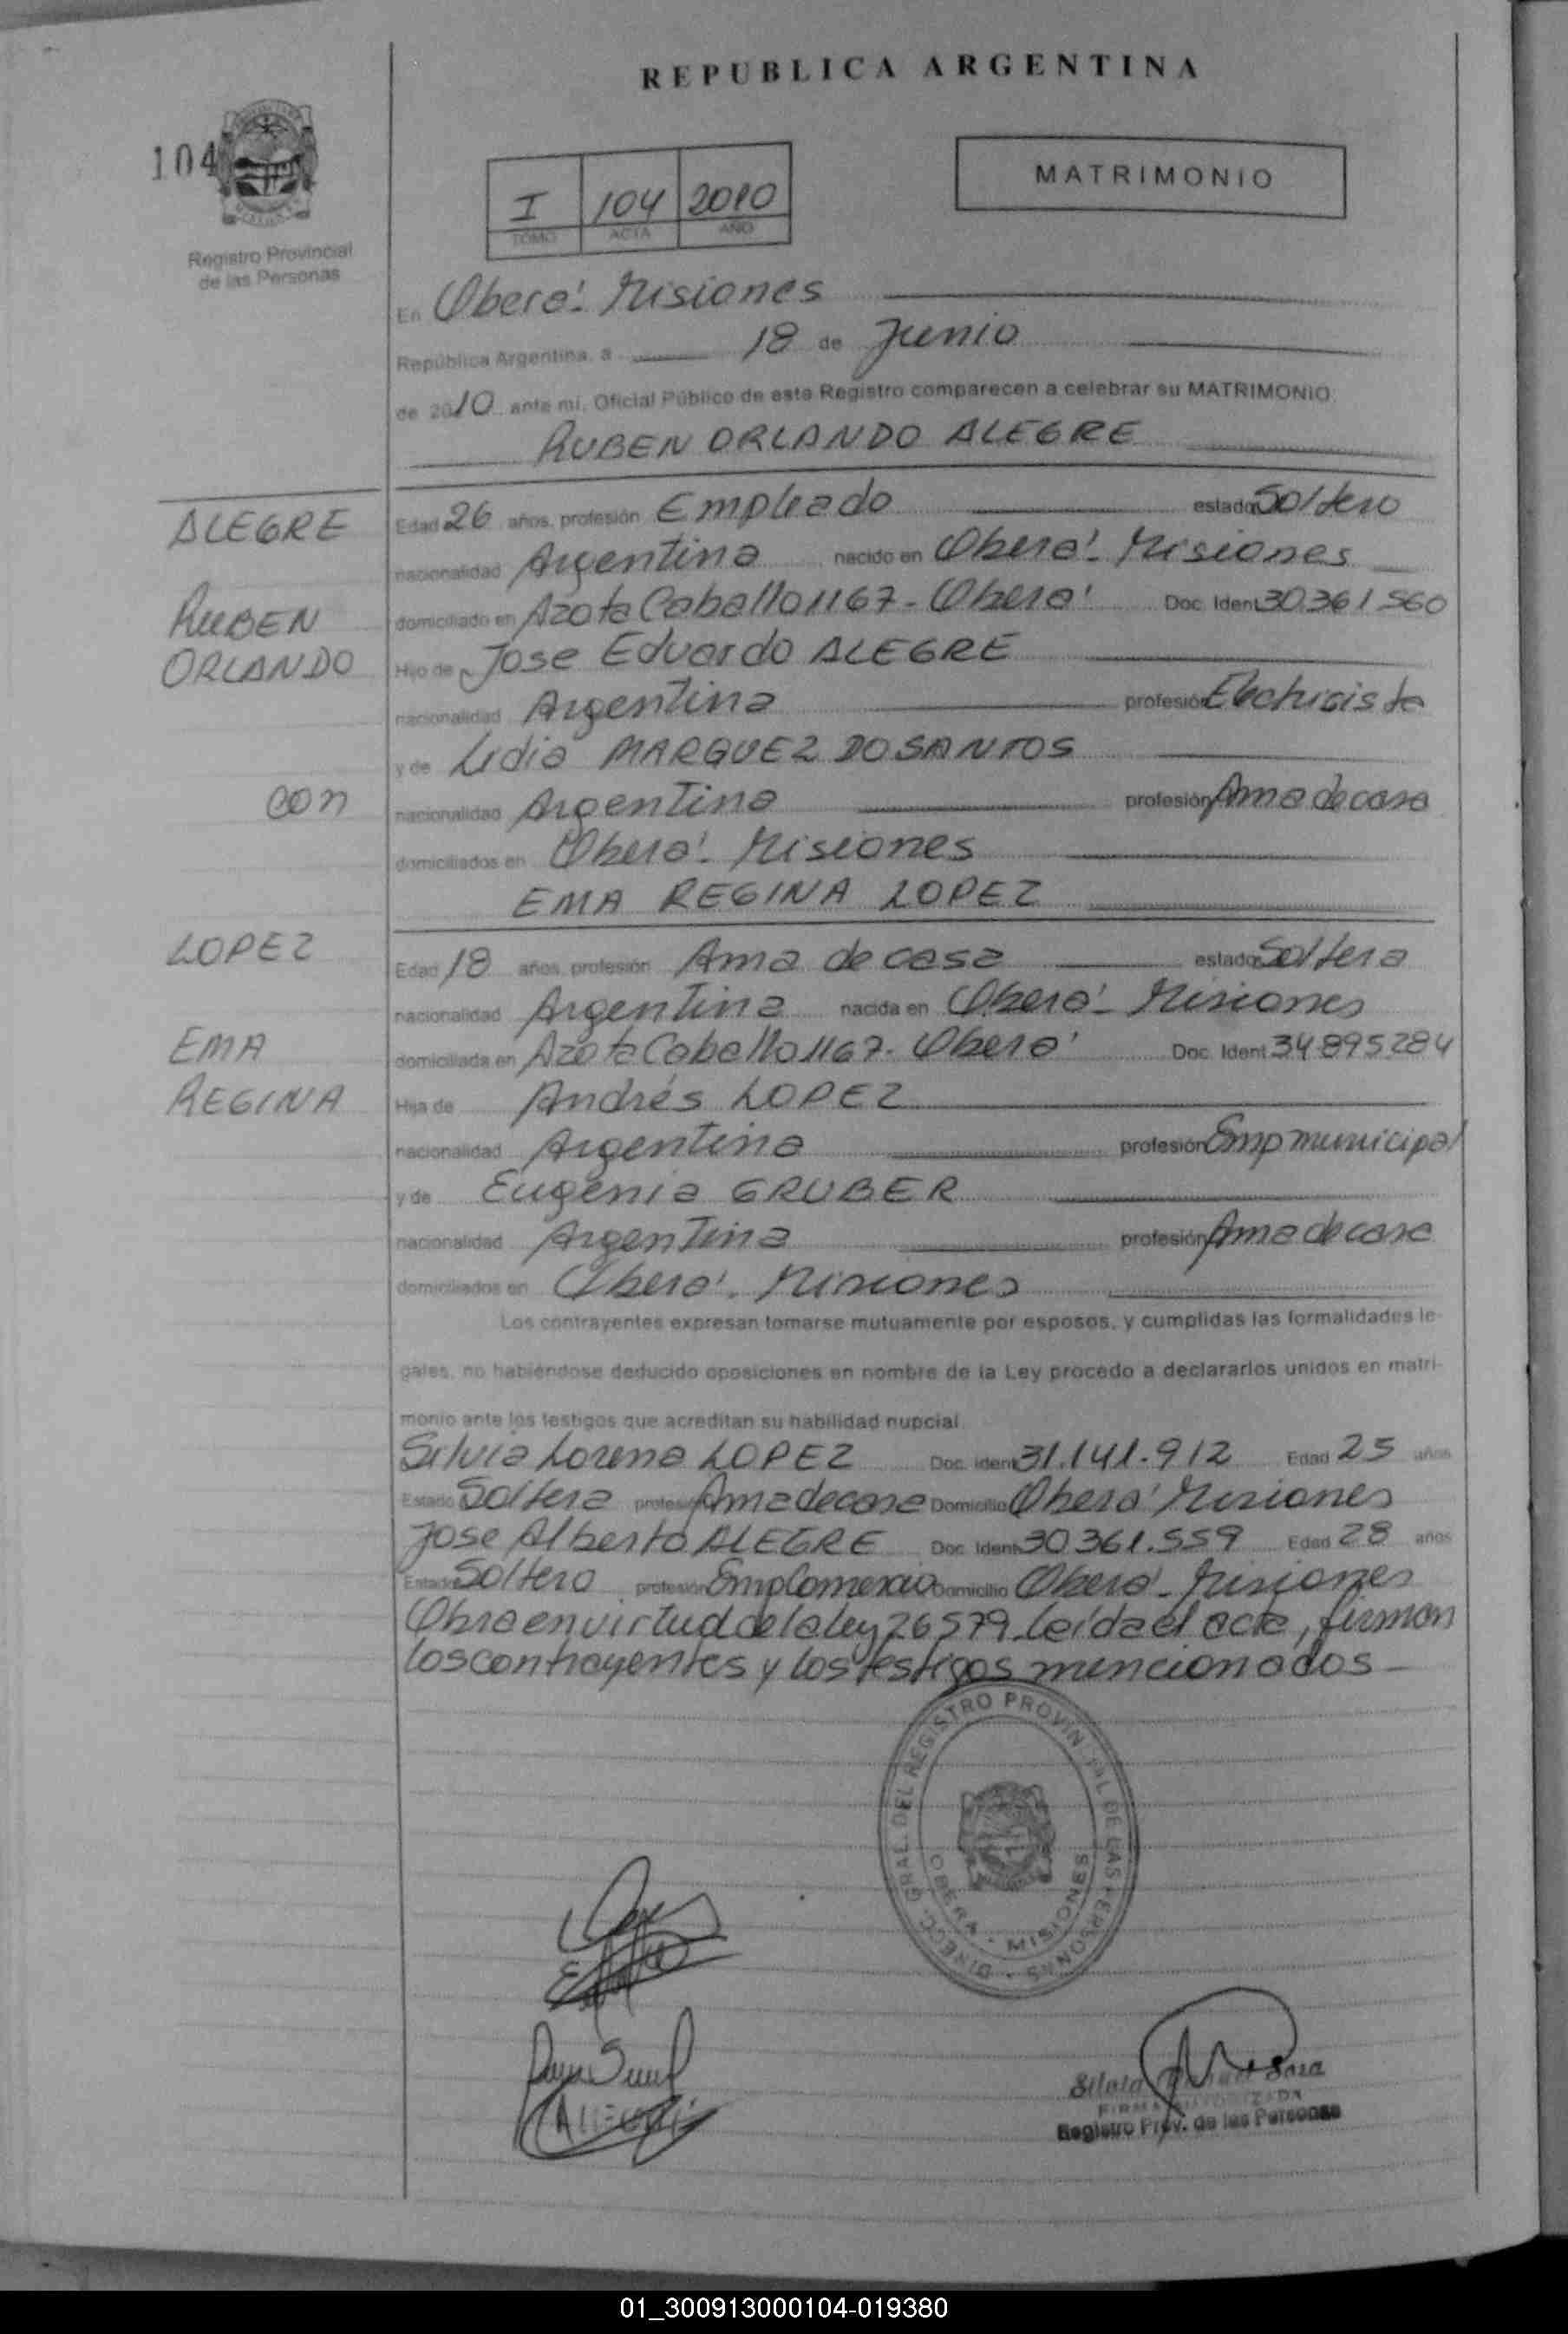 REPUBLICA ARGENTINA
104
Registro Provincial
de las Personas
I 104 2010
TOMO ACTA AÑO
MATRIMONIO
En Oberá - Misiones
República Argentina, a 18 de Junio
de 2010 ante mi, Oficial Público de este Registro comparecen a celebrar su MATRIMONIO:
RUBEN ORLANDO ALEGRE
ALEGRE
RUBEN
ORLANDO
con
LOPEZ
EMA
REGINA
Edad 26 años, profesión Empleado estado Soltero
nacionalidad Argentina nacido en Oberá - Misiones
domiciliado en Azota Caballo 1167 - Oberá Doc. Ident. 30.361.560
Hijo de Jose Eduardo ALEGRE
nacionalidad Argentina profesión Electricista
y de Lidia MARQUEZ DOSANTOS
nacionalidad Argentina profesión Ama de casa
domiciliados en Oberá - Misiones
EMA REGINA LOPEZ
Edad 18 años, profesión Ama de casa estado Soltera
nacionalidad Argentina nacida en Oberá - Misiones
domiciliada en Azota Caballo 1167 - Oberá Doc. Ident. 34895284
Hija de Andrés LOPEZ
nacionalidad Argentina profesión Emp municipal
y de Eugenia GRUBER
nacionalidad Argentina profesión Ama de casa
domiciliados en Oberá - Misiones
Los contrayentes expresan tomarse mutuamente por esposos, y cumplidas las formalidades le-
gales, no habiéndose deducido oposiciones en nombre de la Ley procedo a declararlos unidos en matri-
monio ante los testigos que acreditan su habilidad nupcial.
Silvia Lorena LOPEZ Doc. Ident. 31.141.912 Edad 25 años
Estado Soltera profesión Ama de casa Domicilio Oberá Misiones
Jose Alberto ALEGRE Doc. Ident. 30361.559 Edad 28 años
Estado Soltero profesión Emp Comercio Domicilio Oberá - Misiones
Obra en virtud de la ley 26579. Leída el acta, firman
los contrayentes y los testigos mencionados -
DIRECC. GRAL. DEL REGISTRO PROVINCIAL DE LAS PERSONAS
OBERA - MISIONES
ALEGRE
Silvia Sosa
FIRMA AUTORIZADA
Registro Prov. de las Personas
01_300913000104-019380